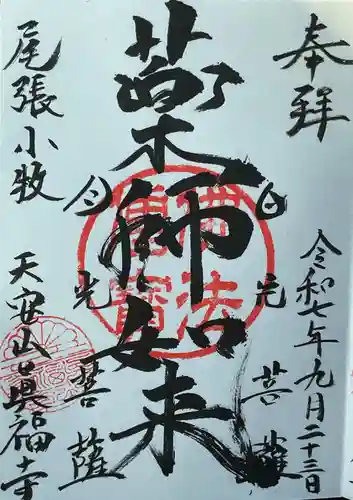 奉拝
令和七年九月二十三日
日光菩薩
薬師如来
月光菩薩
佛法
僧寶
尾張小牧
天安山眞福寺